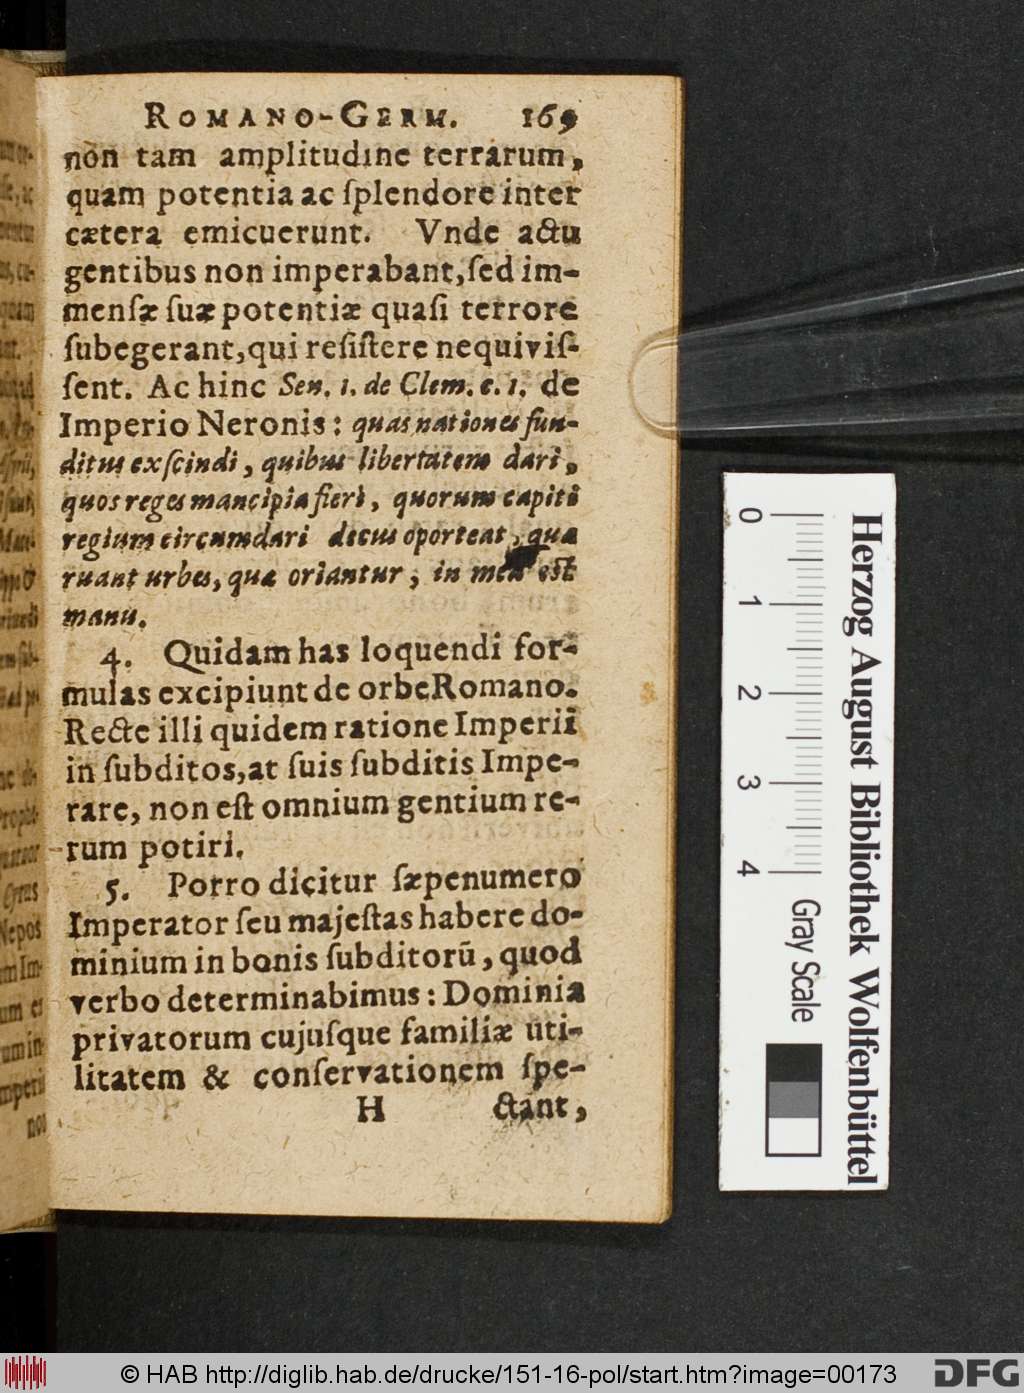 ROMANO-GERM. 169
non tam amplitudine terrarum,
quam potentia ac ſplendore inter
cætera emicuerunt. Vnde actu
gentibus non imperabant, ſed im-
menſæ ſuæ potentiæ quaſi terrore
ſubegerant, qui reſiſtere nequiviſ-
ſent. Ac hinc Sen. 1. de Clem. c. 1. de
Imperio Neronis: quas nationes fun-
ditus exſcindi, quibus libertatem dari,
quos reges mancipia fieri, quorum capiti
regium circumdari decus oporteat, qua
ruant urbes, qua oriantur, in mea est
manu.
4. Quidam has loquendi for-
mulas excipiunt de orbe Romano.
Recte illi quidem ratione Imperii
in ſubditos, at ſuis ſubditis Impe-
rare, non eſt omnium gentium re-
rum potiri.
5. Porro dicitur ſæpenumero
Imperator ſeu majeſtas habere do-
minium in bonis ſubditorū, quod
verbo determinabimus: Dominia
privatorum cujuſque familiæ uti-
litatem & conſervationem ſpe-
H ctant,
0 1 2 3 4
Gray Scale
Herzog August Bibliothek Wolfenbüttel
© HAB http://diglib.hab.de/drucke/151-16-pol/start.htm?image=00173
DFG